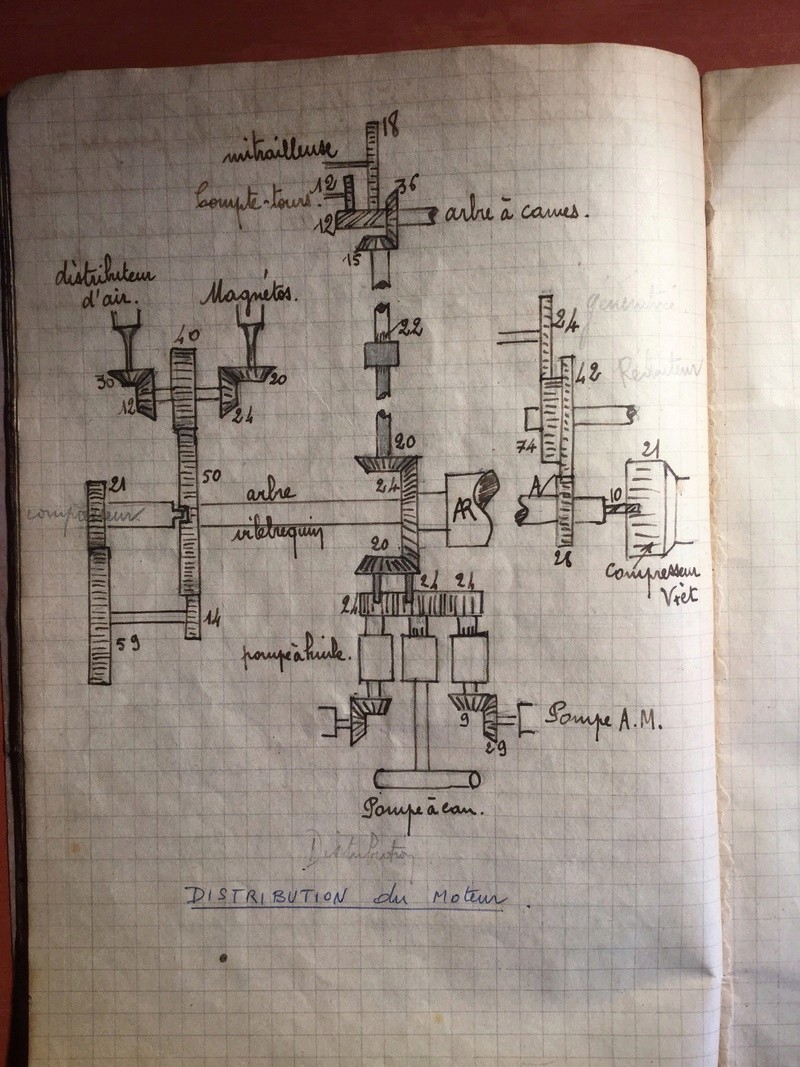 18
mitrailleuse
12
36
Compte-tours.
12
arbre à cames.
15
distributeur
d'air.
Magnétos.
22
24
génératri
40
42
Réducteur
30
20
12
24
74
20
21
50
24
21
arbre
A
AR
10
compresseur
vilebrequin
28
Compresseur
Vret
20
24
24
24
14
59
pompe à huile.
9
Pompe A.M.
29
Pompe à eau.
Distribution
DISTRIBUTION du Moteur.